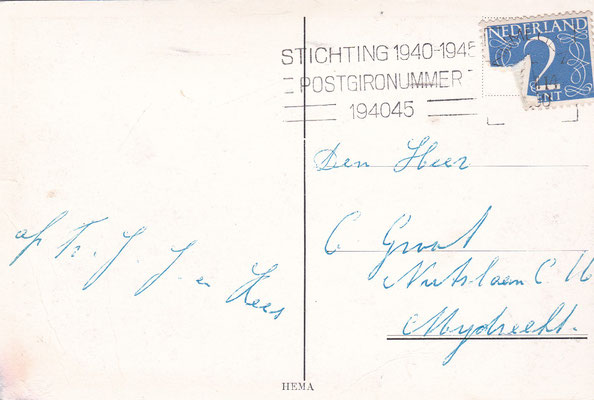 STICHTING 1940-1945
POSTGIRONUMMER
194045
NEDERLAND
2
CENT
Den Heer
C. Groot
Nutslaan C 16
Mijdrecht.
afz. J. J.
HEMA